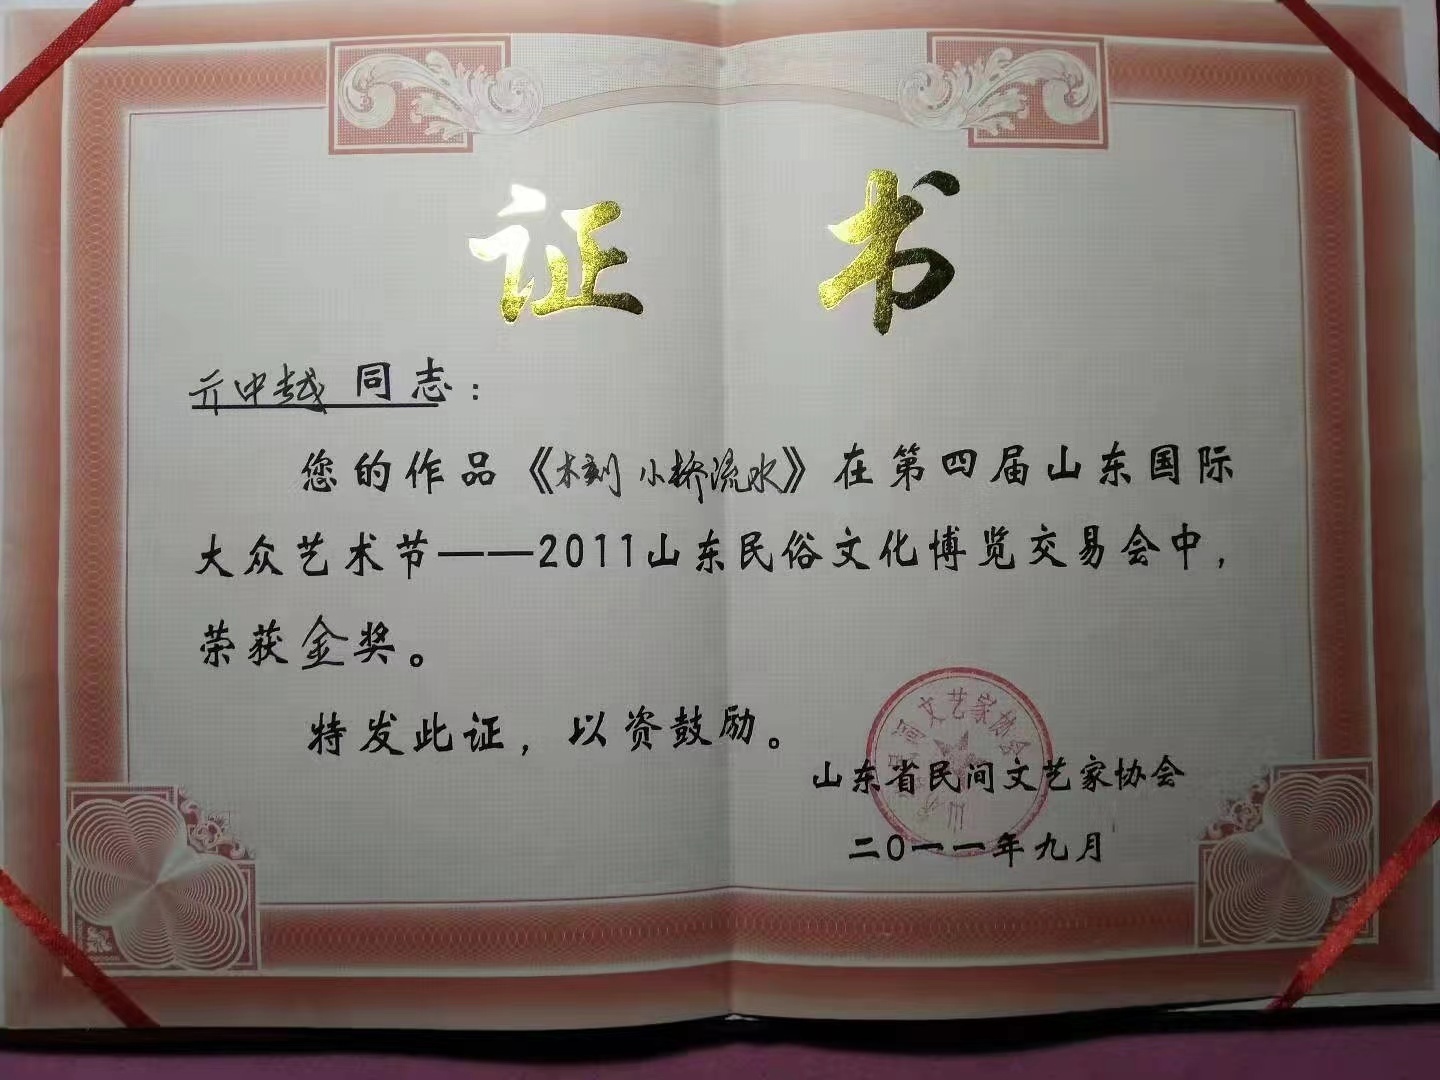 证书
亓中越 同志：
您的作品《木刻 小桥流水》在第四届山东国际
大众艺术节——2011山东民俗文化博览交易会中，
荣获金奖。
特发此证，以资鼓励。
间文艺家协会
山东省民间文艺家协会
二〇一一年九月